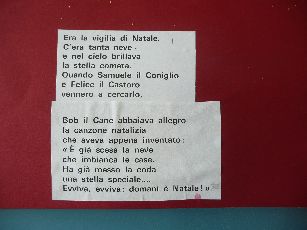 Era la vigilia di Natale.
C'era tanta neve
e nel cielo brillava
la stella cometa.
Quando Samuele il Coniglio
e Felice il Castoro
vennero a cercarlo,
Bob il Cane abbaiava allegro
la canzone natalizia
che aveva appena inventato:
«È già scesa la neve
che imbianca le case.
Ha già messo la coda
una stella speciale...
Evviva, evviva: domani è Natale!»